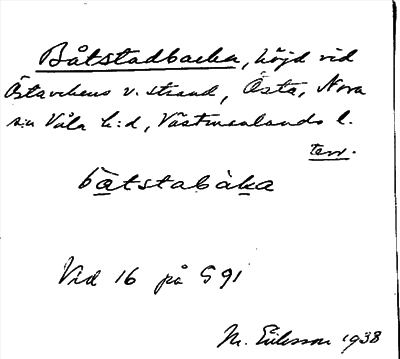 Båtstadbacka, höjd vid
Östavikens v. strand, Östa, Nora
sn Våla h:d, Västmanlands l.
terr.
bàtstabàka
Vid 16 på G 91
M. Eriksson 1938